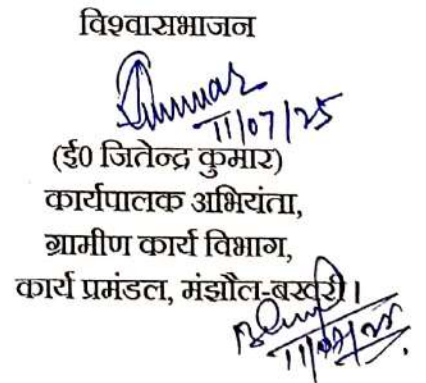 विश्वासभाजन
11/07/25
(ई0 जितेन्द्र कुमार)
कार्यपालक अभियंता,
ग्रामीण कार्य विभाग,
कार्य प्रमंडल, मंझौल-बखरी।